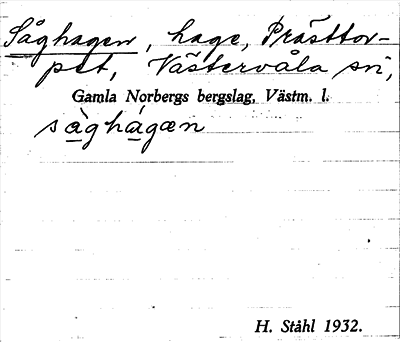 Såghagen, hage, Prästtor-
pet, Västervåla sn,
Gamla Norbergs bergslag, Västm. l.
sàghágæn
H. Ståhl 1932.